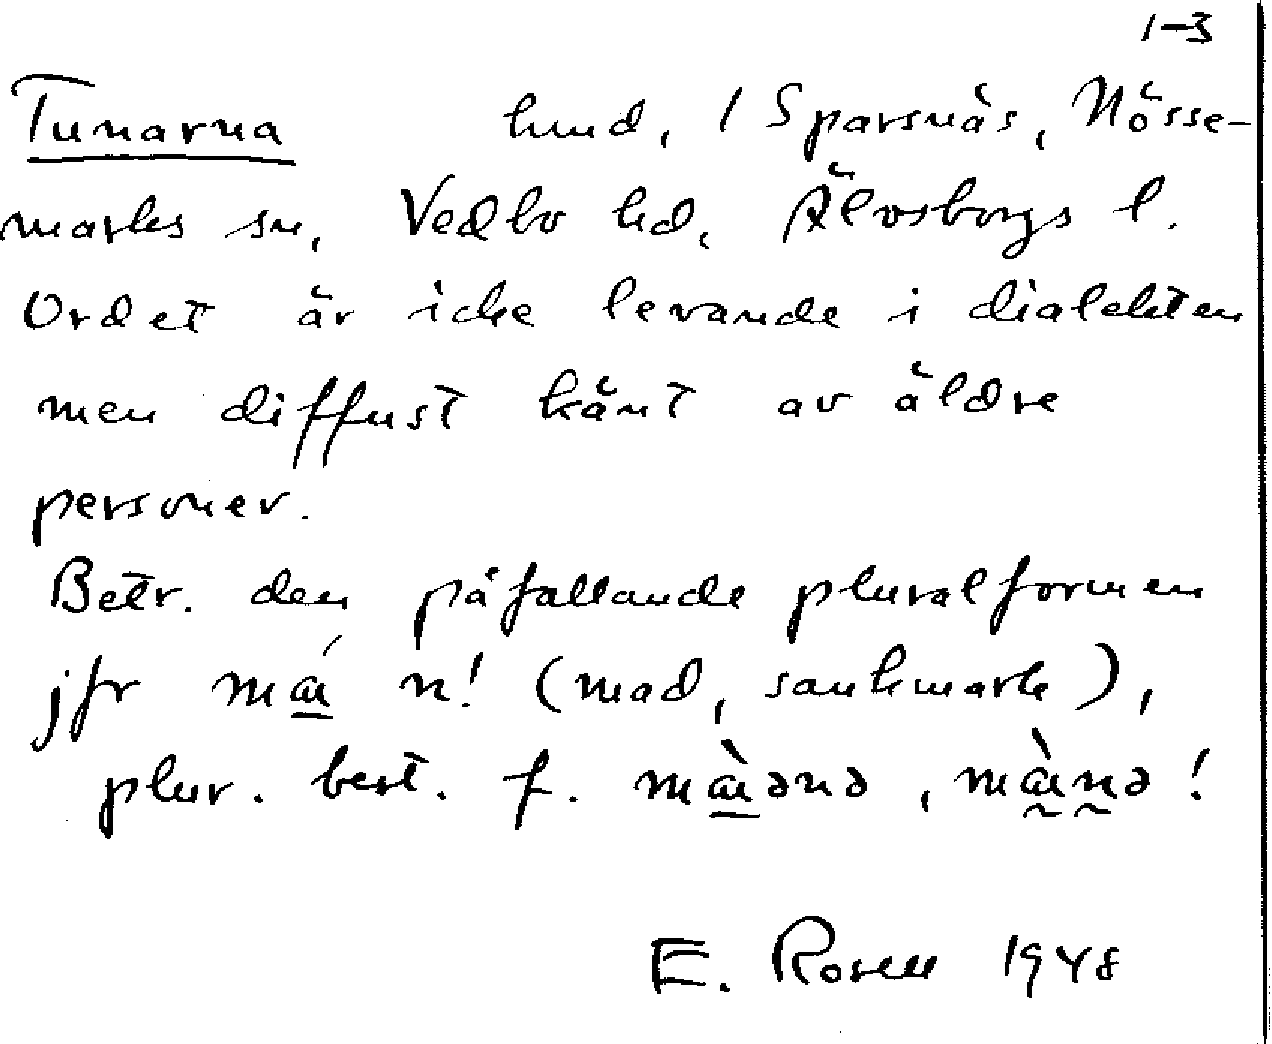 1-3
Tunarna hmd, 1 Sparsnäs, Nösse-
marks sn, Vedbo hd, Älvsborgs l.
Ordet är icke levande i dialekten
men diffust känt av äldre
personer.
Betr. den påfallande pluralformen
jfr má n! (mad, sankmark),
plur. best. f. màənə, mànə!
E. Rosell 1948